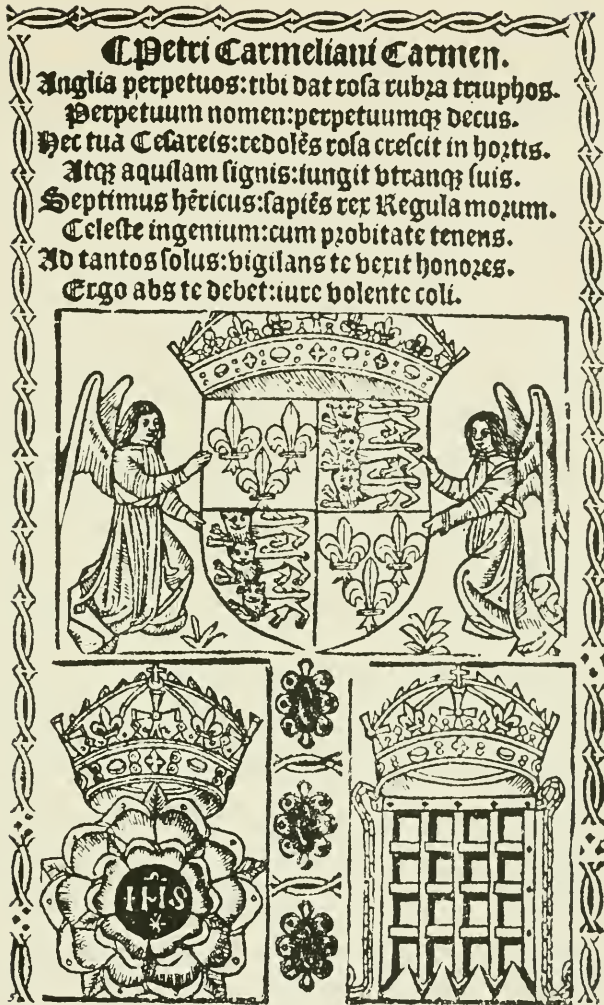 ¶Petri Carmeliani Carmen.
Anglia perpetuos:tibi dat rosa rubra triũphos.
Perpetuum nomen:perpetuumqꝫ decus.
Hec tua Cesareis:redolẽs rosa crescit in hortis.
Atqꝫ aquilam signis:iungit vtranqꝫ suis.
Septimus hẽricus:sapiẽs rex Regula morum.
Celeste ingenium:cum probitate tenens.
Ad tantos solus:vigilans te vexit honores.
Ergo abs te debet:iure volente coli.
IHS